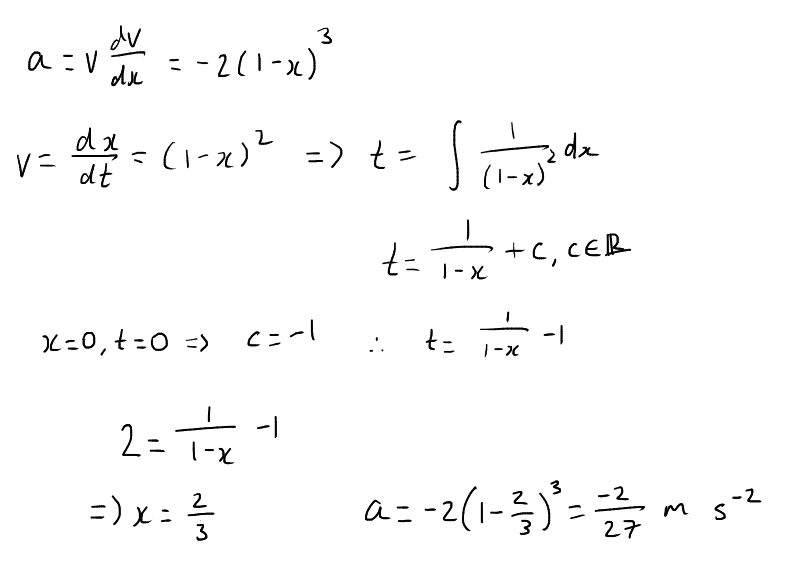 a = v dv/dx = -2(1-x)^3
v = dx/dt = (1-x)^2 => t = ∫ 1/(1-x)^2 dx
t = 1/(1-x) + c, c∈ℝ
x=0, t=0 => c=-1 ∴ t = 1/(1-x) -1
2 = 1/(1-x) -1
=> x = 2/3 a = -2(1-2/3)^3 = -2/27 m s^-2